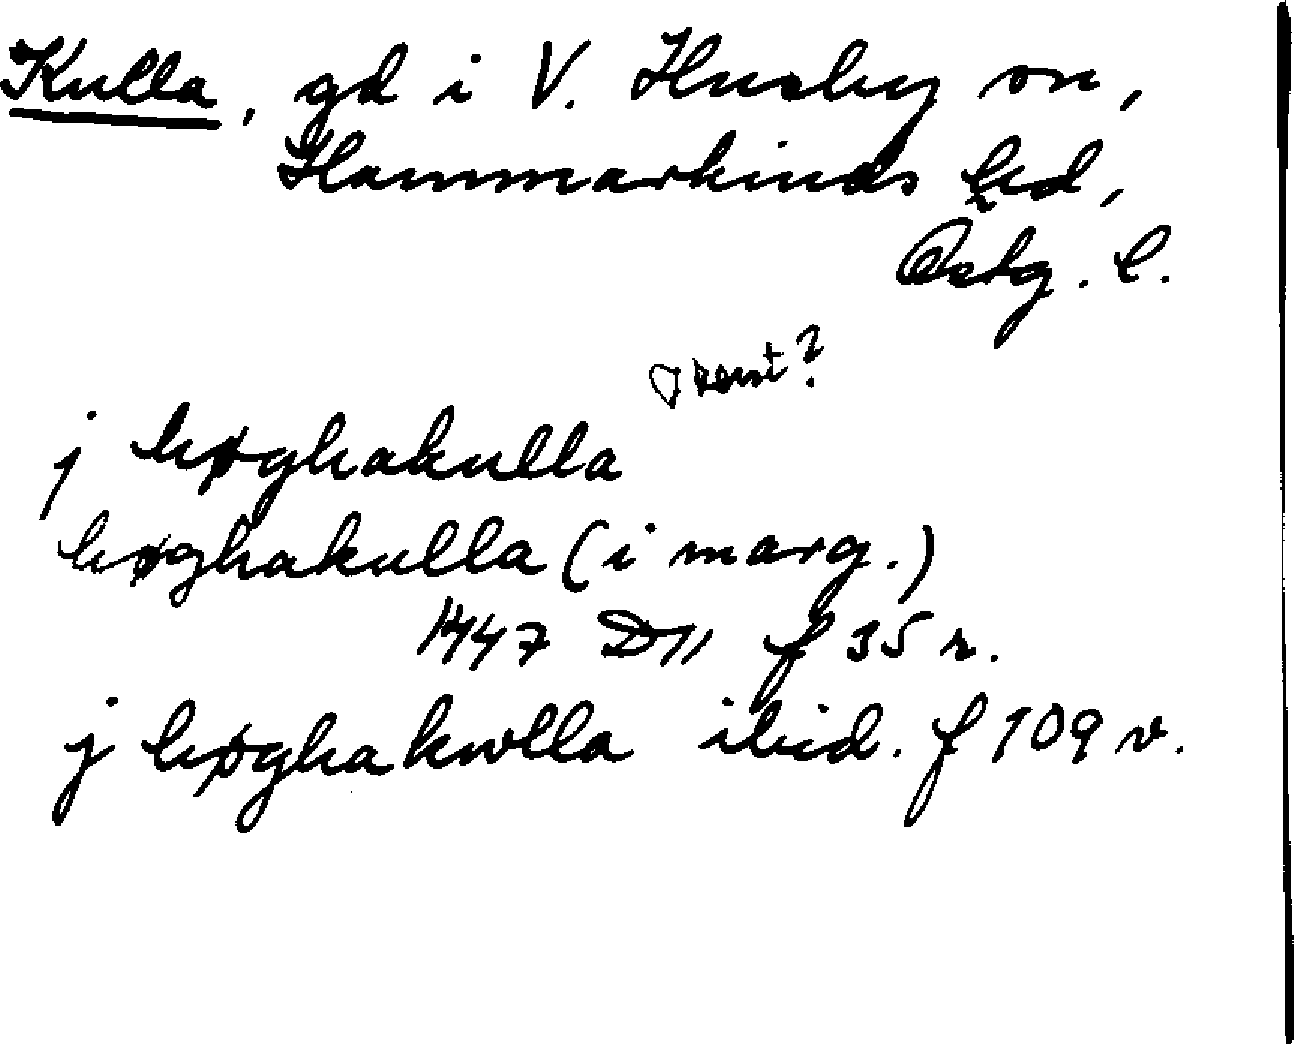 Kulla, gd i V. Husby sn,
Hammarkinds hd,
Östg. l.
j høghakulla
høghakulla (i marg.)
1447 D11 f 35 r.
j høghakwlla ibid. f 109 v.